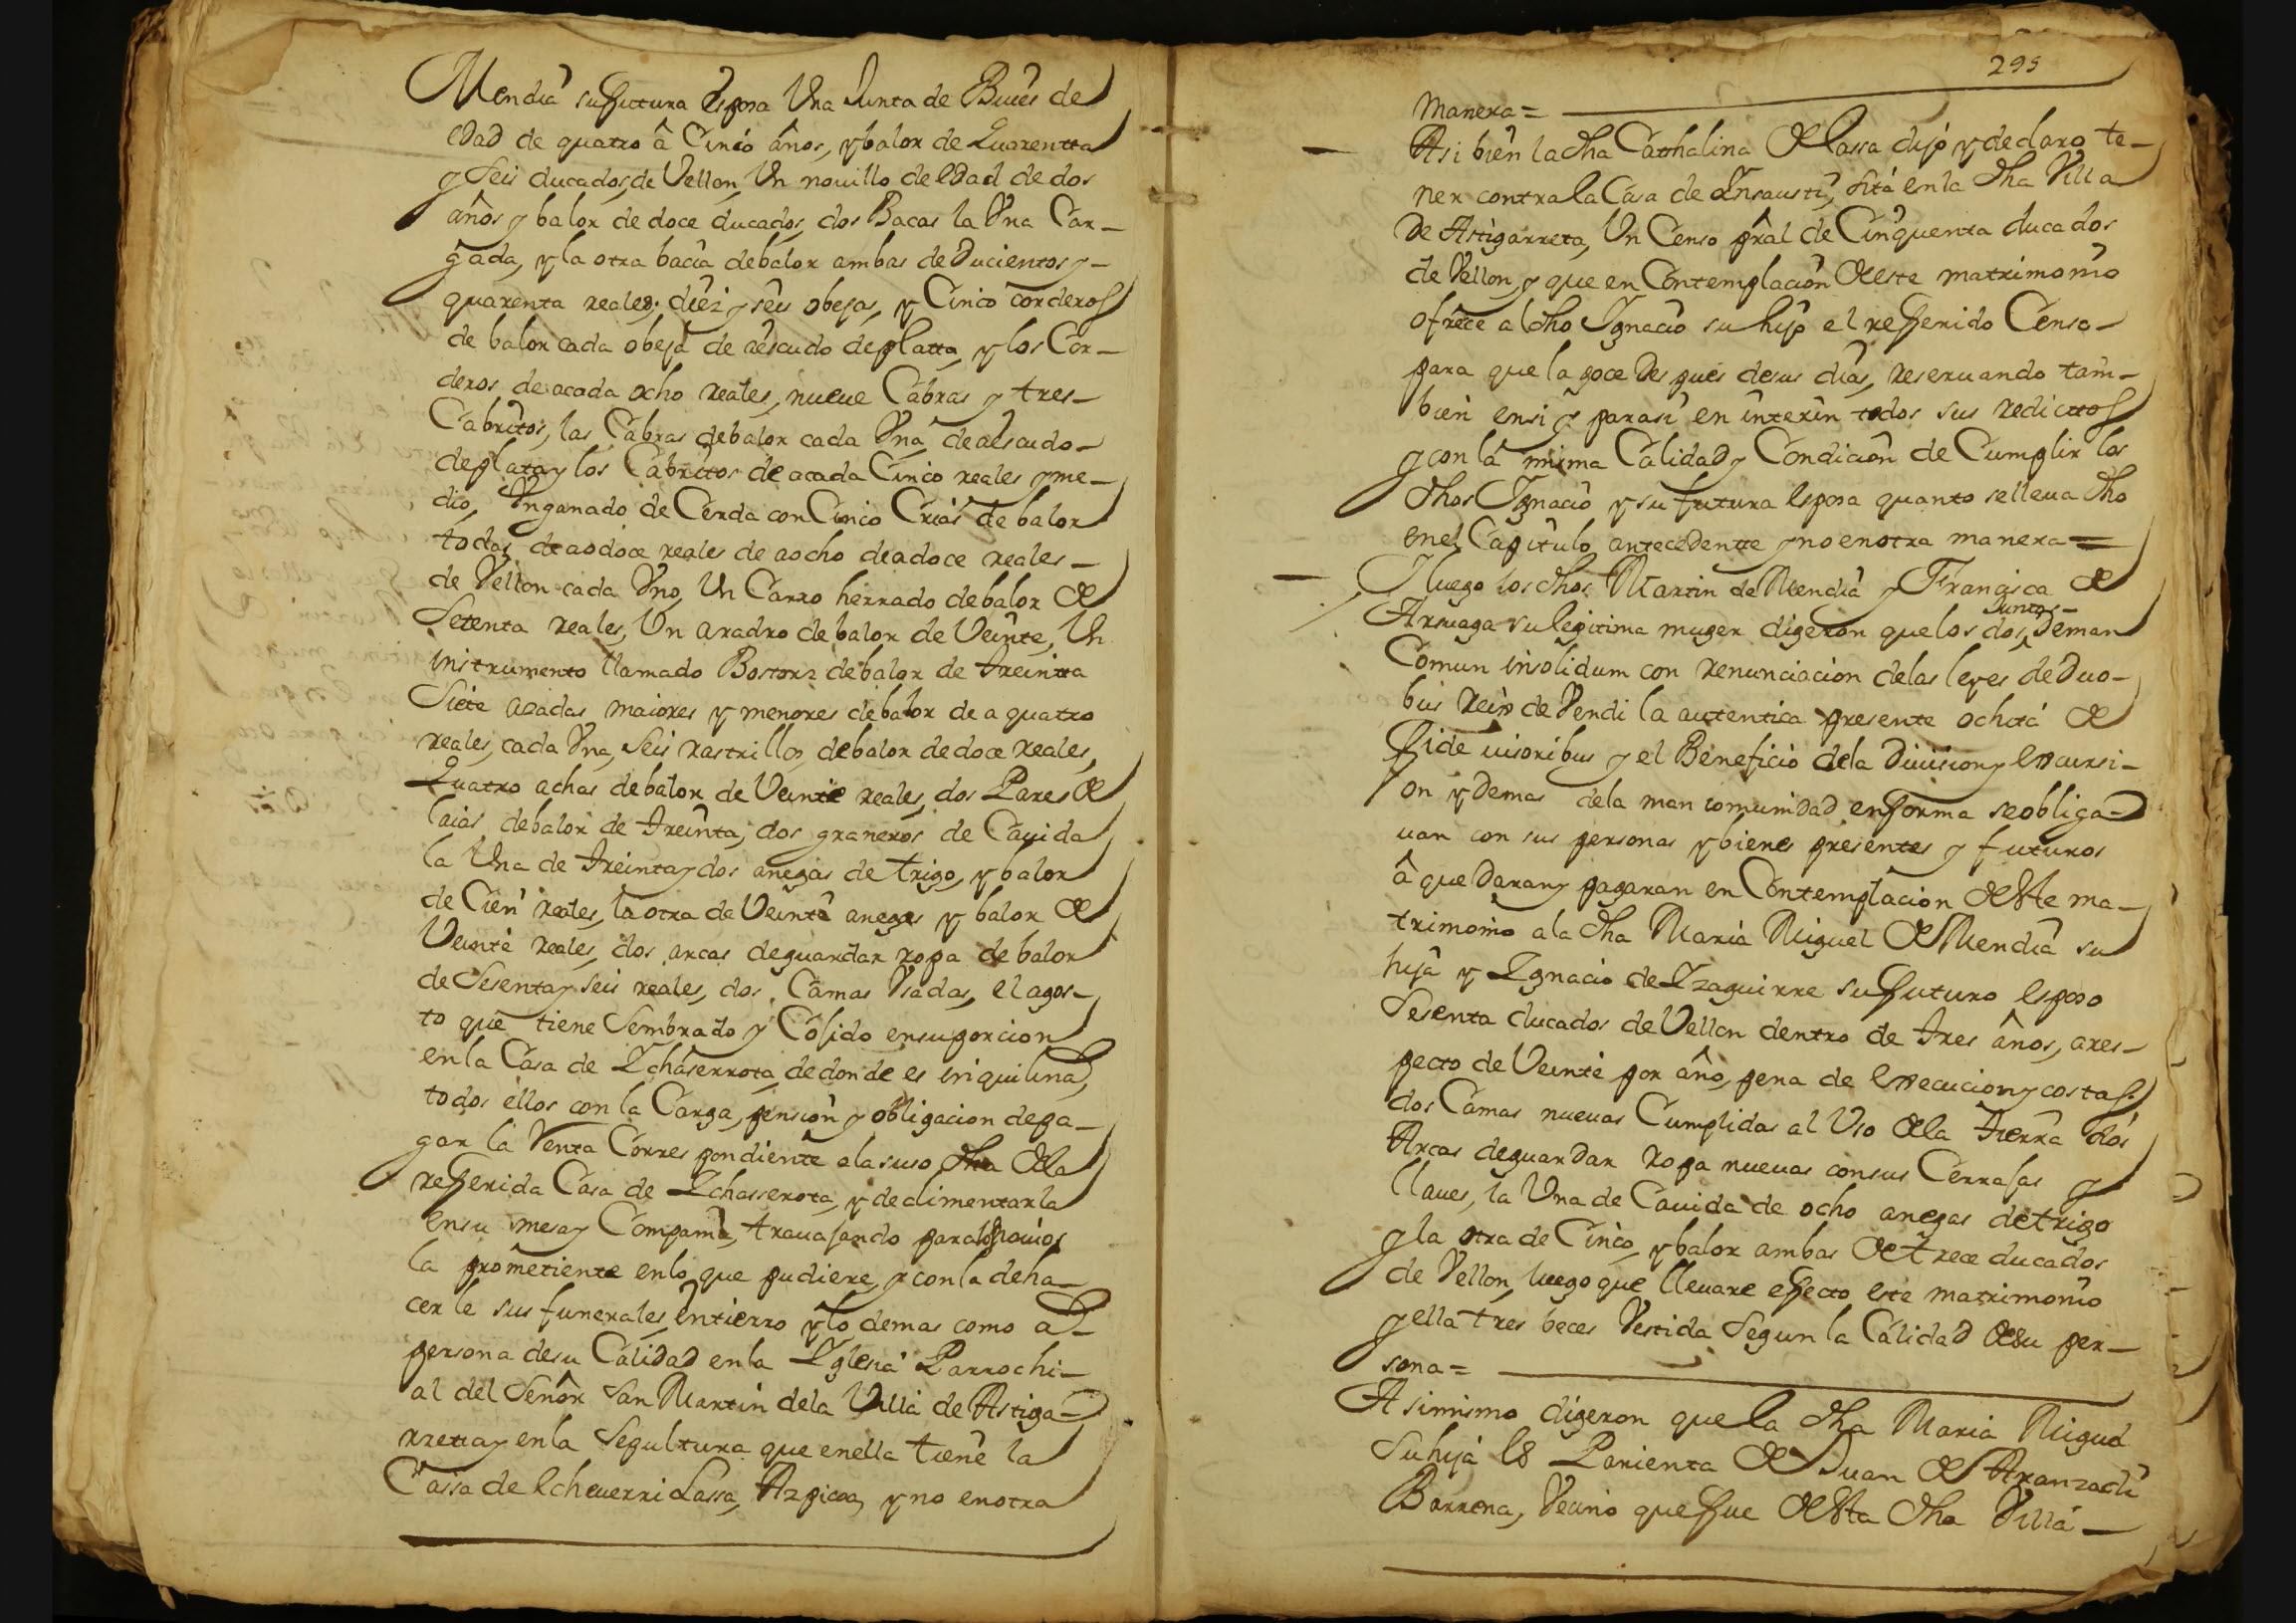 Mendia su futura esposa Una Junta de Bues de
edad de quatro â Cinco años, y balor de Quarentta
y seis ducados de Vellon, Un nouillo de edad de dos
años y balor de doce ducados, dos Bacas la Una Car-
gada, y la otra bacia de balor ambas de Ducientos y-
quarenta reales; diez y seis obejas, y Cinco corderos
de balor cada obeja de aescudo de platta, y los Cor-
deros de acada ocho reales, nueue Cabras y tres-
Cabritos, las Cabras de balor cada Una de aescudo-
de plata y los Cabritos de acada Cinco reales y me-
dio, Un ganado de Cerda con Cinco Crias de balor
todas de aodoce reales de aocho deadoce reales-
de Vellon cada Uno, Un Carro herrado de balor de
Setenta reales, Un aradro de balor de Veinte, Un
instrumento llamado Bostorz de balor de treintta
Siete azadas maiores y menores de balor de a quatro
reales, cada Una, Seis rastrillos de balor de doce reales,
Quatro achas de balor de Veinte reales, dos Pares de
laias de balor de treinta, dos graneros de Cauida
la Una de treinta y dos anegas de trigo, y balor
de Cien reales, la otra de Veinte anegas y balor de
Veinte reales, dos arcas de guardar ropa de balor
de Sesenta y seis reales, dos Camas Usadas, el agos-
to que tiene Sembrado y Cosido en su porcion
en la Casa de Ychaserrota, de donde es inquilina,
todos ellos con la Carga, pension y obligacion de pa-
gar la Renta Correspondiente a la suso dha de la
refferida Casa de Ychasserota, y de alimentarla
en su mesa y Compania, trauajando para los nouios
la prometiente en lo que pudiere, y con la de ha-
cerle sus funerales, entierro y lo demas como a
persona de su Calidad en la Yglesia Parrochi-
al del Señor San Martin de la Villa de Astiga-
rretta y en la Sepultura que en ella tiene la
Cassa de Echeuerri Lassa, Azpicoa, y no en otra
295
Manera=
Asi bien la dha Cathalina de Lassa dijo y declaro te-
ner contra la Casa de Ynsausti, sita en la dha Villa
de Astigarreta, Un Censo pral de Cinquenta ducados
de Vellon, y que en Contemplacion de este matrimonio
ofrece al dho Ygnacio su hijo el refferido Censo-
para que la goce despues de sus dias, reseruando tam-
bien en si y para si en interin todos sus redicttos
y con la misma Calidad y Condicion de Cumplir los
dhos Ygnacio y su futura esposa quanto se lleua dho
en el Capitulo antecedentte y no en otra manera=
Y luego los dhos Martin de Mendia y Francisca de
Arsuaga su legitima muger digeron que los dos Juntos- de man
Comun insolidum con renunciacion de las leyes de Duo-
bus Reis de Vendi la autentica presente ochita de
fide iusoribus y el Beneficio de la Diuision y excursi-
on y demas de la man comunidad en forma se obliga-
uan con sus personas y bienes presentes y futuros
â que daran y pagaran en Contemplacion de este ma-
trimonio a la dha Maria Miguel de Mendia su
hija y Ygnacio de Yzaguirre su futuro esposo
Sesenta ducados de Vellon dentro de tres años, a res-
pecto de Veinte por año, pena de execucion y costas.
dos Camas nuevas Cumplidas al Uso de la tierra dos
Arcas de guardar ropa nueuas con sus Cerrajas y
llaues, la Una de Cauida de ocho anegas de trigo
y la otra de Cinco, y balor ambas de trece ducados
de Vellon, luego que lleuare effecto este matrimonio
y ella tres beces Vestida Segun la Calidad de su per-
sona=
Asimismo digeron que la dha Maria Miguel
su hija es Parienta de Juan de Aranzadi
Barrena, Vecino que fue de esta dha Villa-